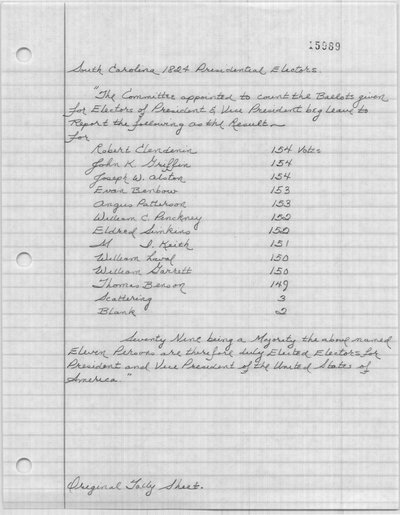 15989
South Carolina 1824 Presidential Electors.
"The Committee appointed to count the Ballots given
for Electors of President & Vice President beg leave to
Report the following as the Result—
For
Robert Clendenin 154 Votes
John K. Griffin 154
Joseph W. Alston 154
Evan Benbow 153
Angus Patterson 153
William C. Pinckney 152
Eldred Simkins 152
M I. Keith 151
William Laval 150
William Garrett 150
Thomas Benson 149
Scattering 3
Blank 2
Seventy Nine being a Majority the above named
Eleven Persons are therefore duly Elected Electors for
President and Vice President of the United States of
America."
Original Tally Sheet.